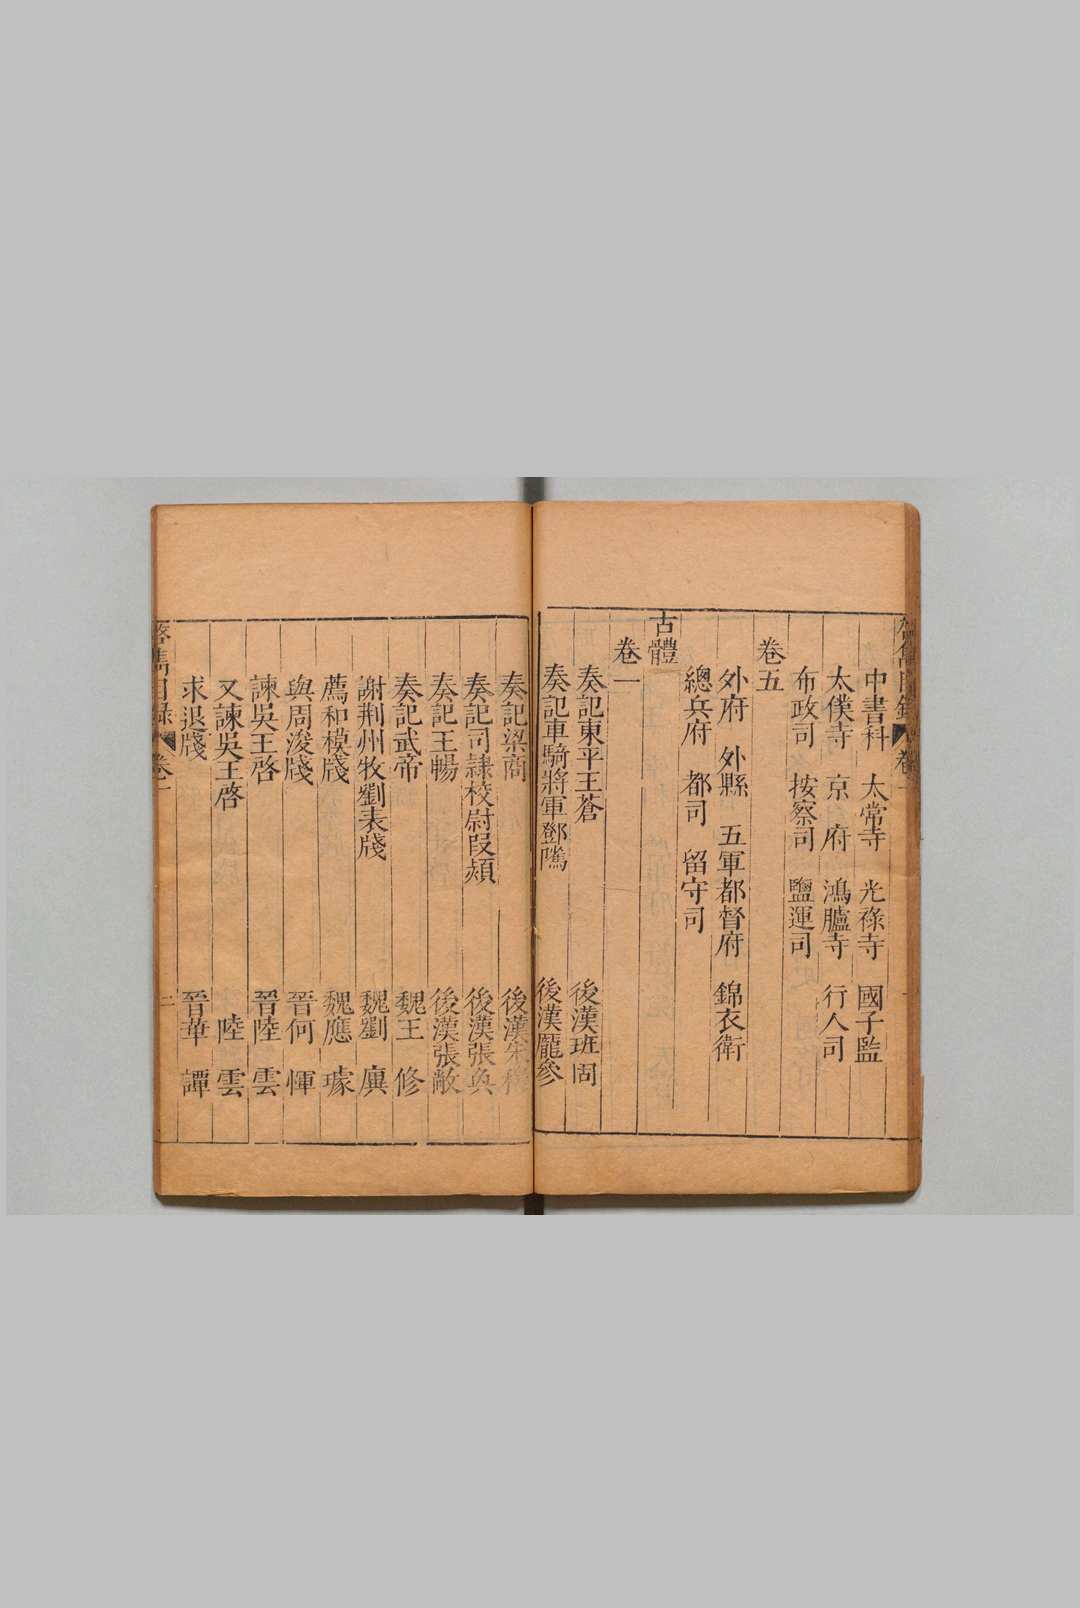 中書科　太常寺　光祿寺　國子監
太僕寺　京府　鴻臚寺　行人司
布政司　按察司　鹽運司
卷五
外府　外縣　五軍都督府　錦衣衛
總兵府　都司　留守司
古體
卷一
奏記東平王蒼　後漢班固
奏記車騎將軍鄧騭　後漢龐參
奏記梁商　後漢朱穆
奏記司隷校尉段熲　後漢張奐
奏記王暢　後漢張敞
奏記武帝　魏王修
謝荆州牧劉表牋　魏劉廙
薦和模牋　魏應璩
與周浚牋　晉何惲
諫吳王啓　晉陸雲
又諫吳王啓　陸雲
求退牋　晉華譚
啓雋目錄　卷一